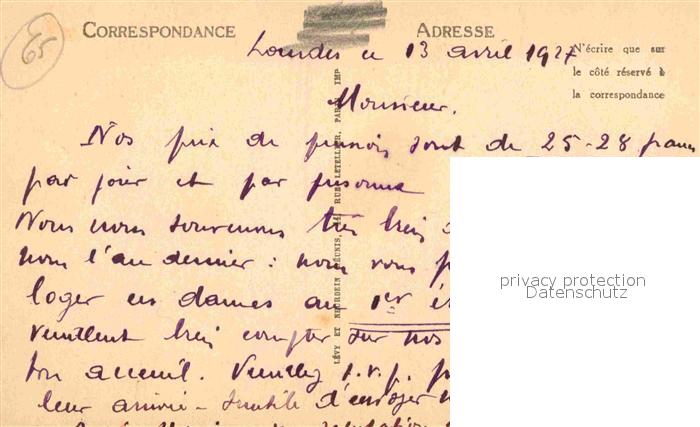 65
CORRESPONDANCE
ADRESSE
Lourdes le 13 avril 1927
N'écrire que sur
le côté réservé à
la correspondance
Monsieur.
Nos prix de pension sont de 25-28 francs
par jour et par personne
Nous nous souvenons très bien
nom l'an dernier : nous vous
loger ces dames au 1er
veuillent bien compter sur nos
bon acceuil. Veuillez s.v.p.
leur arrivée - Inutile d'envoyer
LÉVY ET NEURDEIN RÉUNIS, 44, RUE LETELLIER, PARIS IMP
privacy protection
Datenschutz